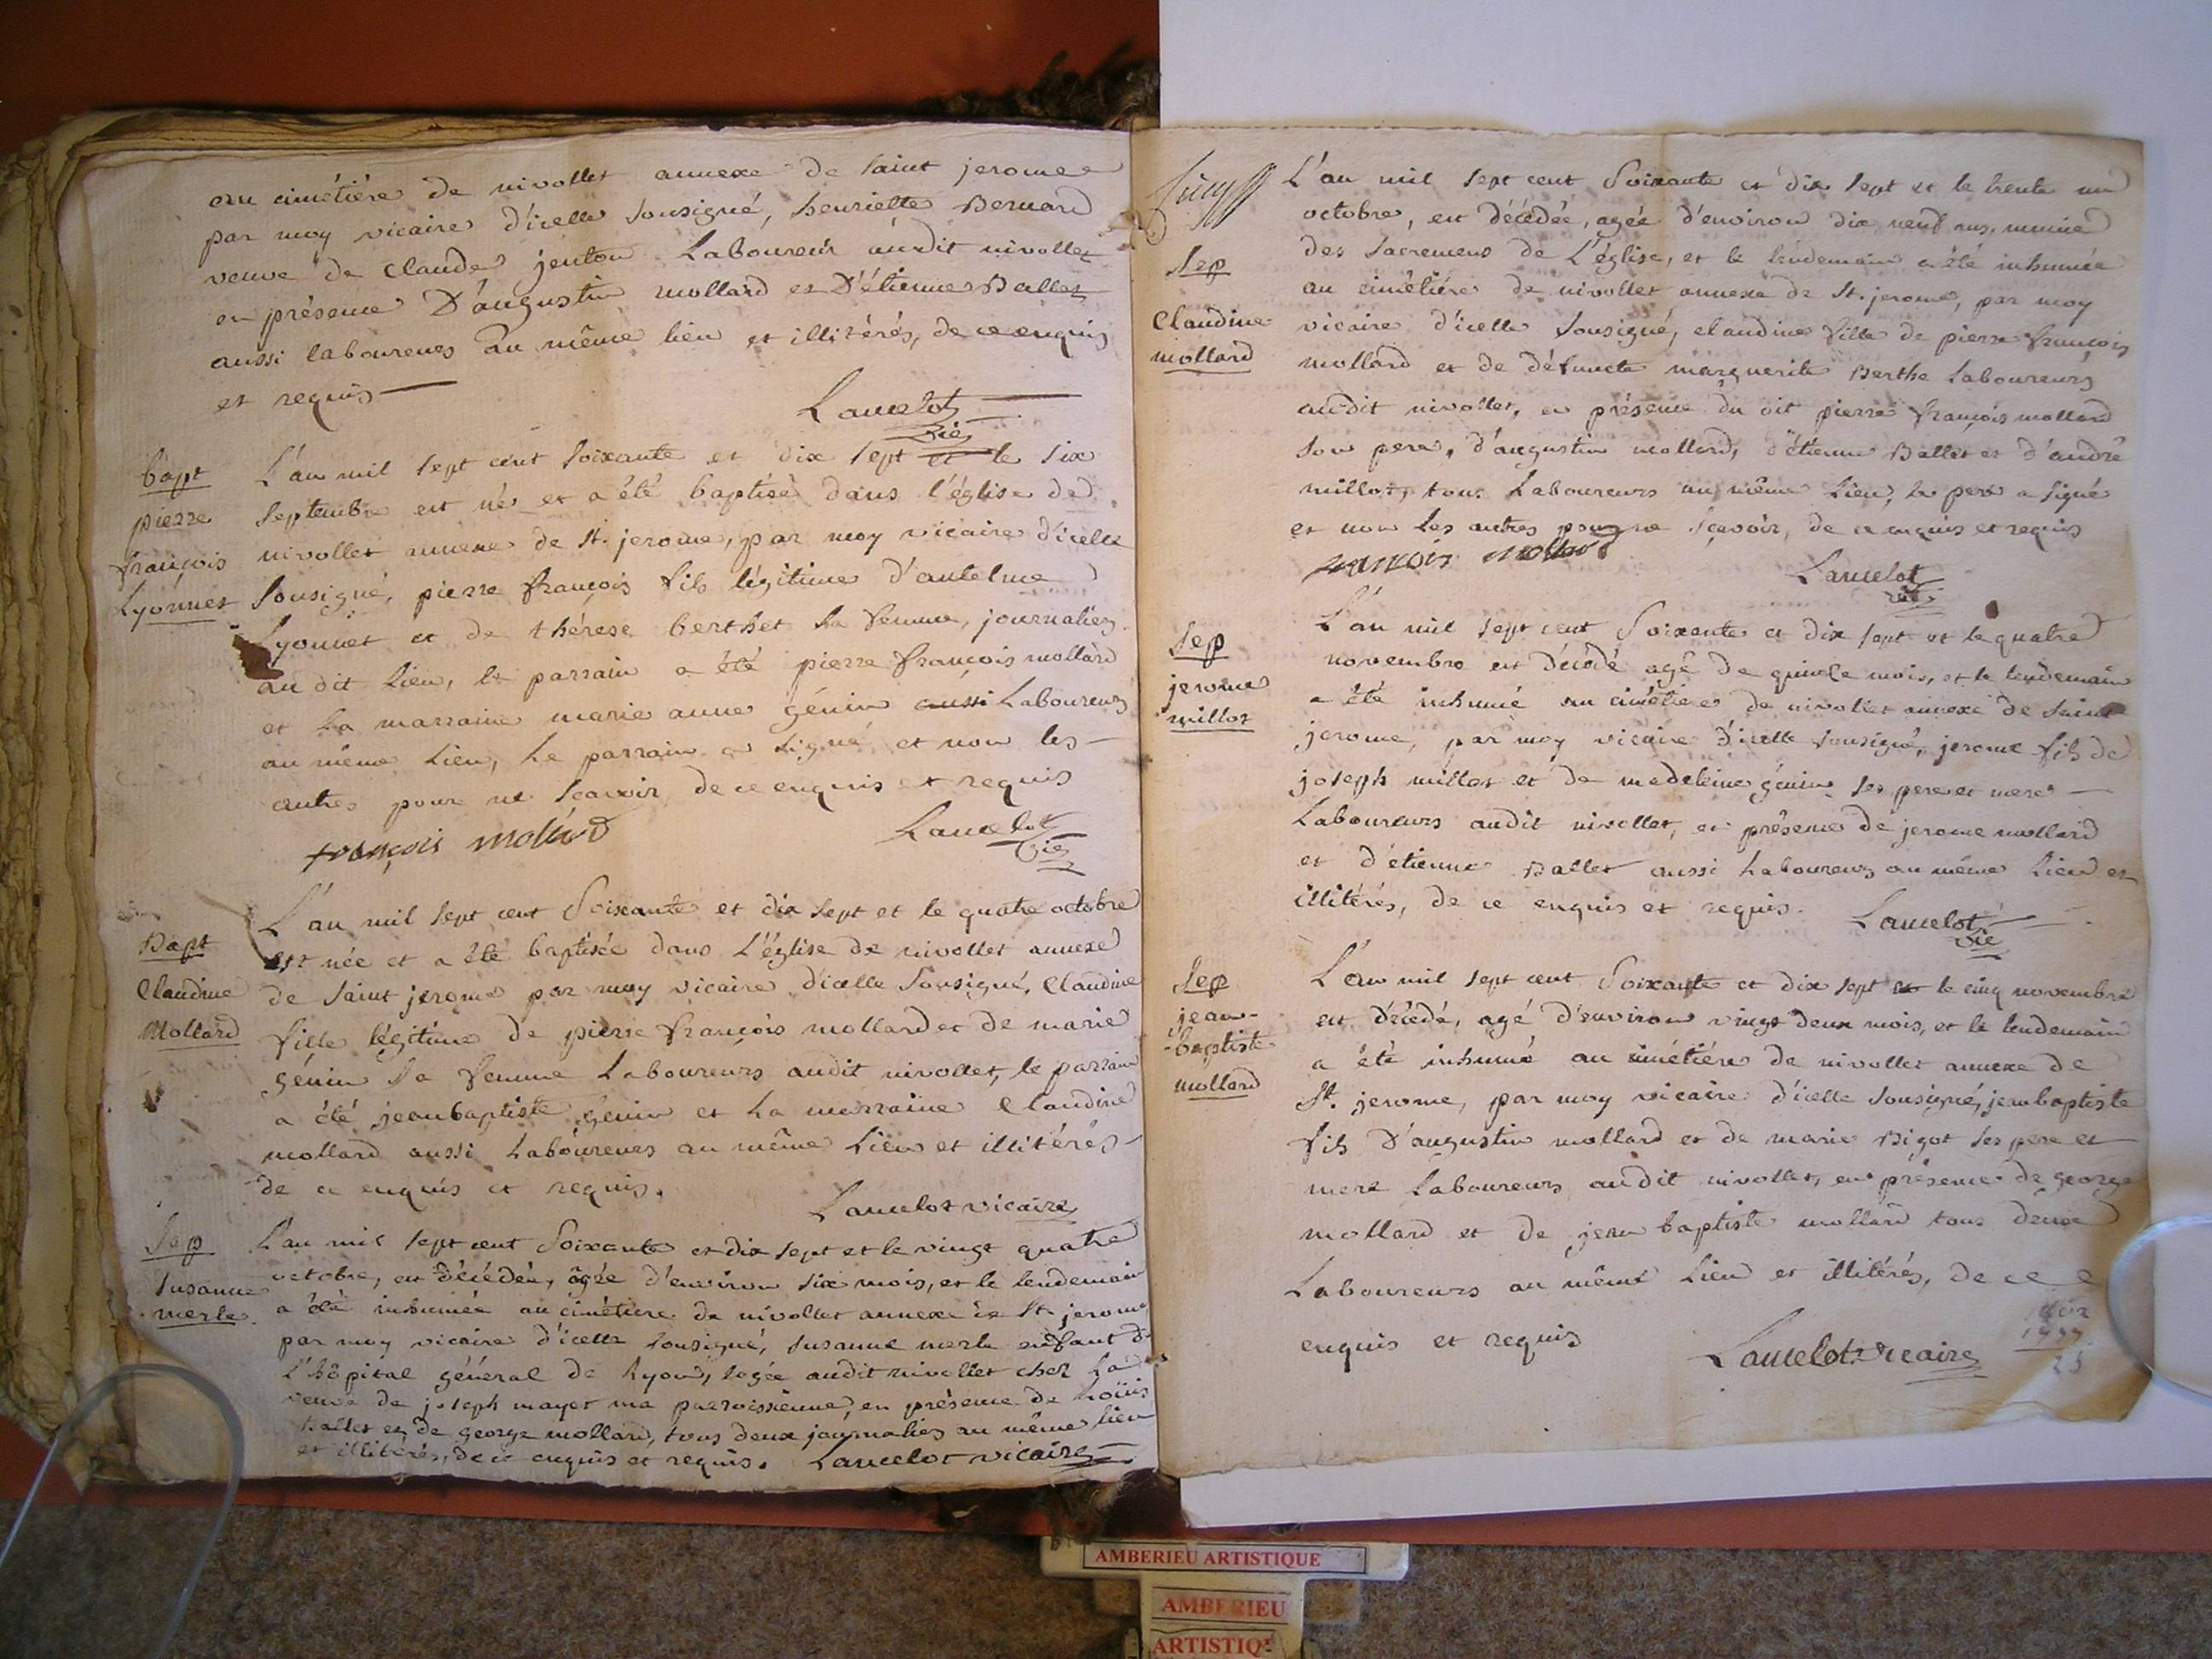 au cimétiére de nivollet annexe de saint jerome
par moy vicaire d'icelle sousigné, henriette Bernard
veuve de claude jenton Laboureur audit nivollet
en présence D'augustin mollard et D'étienne Ballet
aussi laboureurs au même lieu et illitérés, de ce enquis
et requis
Lancelot
vic
bapt
pierre
françois
Lyonnet
L'an mil sept cent soixante et dix sept et le six
septembre est né et a été baptisé dans l'église de
nivollet annexe de st. jerome, par moy vicaire d'icelle
sousigné, pierre françois fils légitime d'antelme
Lyonnet et de thérese berthet sa femme, journaliers
au dit lieu, le parrain a été pierre françois mollard
et la marraine marie anne génin aussi Laboureurs
au même lieu, le parrain a signé et non les
autres pour ne scavoir, de ce enquis et requis
françois mollard
Lancelot
vic
Bapt
Claudine
Mollard
L'an mil sept cent soixante et dix sept et le quatre octobre
est née et a été baptisée dans L'église de nivollet annexe
de saint jerome par moy vicaire d'icelle sousigné, Claudine
fille légitime de pierre françois mollard et de marie
génin sa femme Laboureurs audit nivollet, le parrain
a été jean baptiste génin et la marraine Claudine
mollard aussi Laboureurs au même lieu et illitérés
de ce enquis et requis.
Lancelot vicaire
Sep
Susanne
merle
L'an mil sept cent soixante et dix sept et le vingt quatre
octobre, est décédée, âgée d'environ six mois, et le lendemain
a été inhumée au cimétiere de nivollet annexe de st. jerome
par moy vicaire d'icelle sousigné, susanne merle enfant de
L'hôpital général de Lyon, logée audit nivollet chez la
veuve de joseph mayet ma paroissienne, en présence de Loüis
Ballet et de george mollard, tous deux journaliers au même lieu
et illitérés, de ce enquis et requis. Lancelot vicaire
Sep
Claudine
mollard
L'an mil sept cent soixante et dix sept et le trente un
octobre, est décédée, agée d'environ dix neuf ans, munie
des sacremens de L'église, et le lendemain a été inhumée
au cimétiére de nivollet annexe de st. jerome, par moy
vicaire d'icelle sousigné, claudine fille de pierre françois
mollard et de défuncte marguerite Berthe Laboureurs
audit nivollet, en présence du dit pierre françois mollard
son pere, d'augustin mollard, d'étienne Ballet et d'andré
millot, tous Laboureurs au même lieu, le pere a signé
et non les autres pour ne scavoir, de ce enquis et requis
françois mollard
Lancelot
vic
Sep
jerome
millot
L'an mil sept cent soixante et dix sept et le quatre
novembre est décédé agé de quinze mois, et le lendemain
a été inhumé au cimétiere de nivollet annexe de saint
jerome, par moy vicaire d'icelle sousigné, jerome fils de
joseph millot et de madeleine génin ses pere et mere
Laboureurs audit nivollet, en présence de jerome mollard
et d'étienne Ballet aussi Laboureurs au même lieu et
illitérés, de ce enquis et requis.
Lancelot
vic
Sep
jean-
baptiste
mollard
L'an mil sept cent soixante et dix sept et le cinq novembre
est décédé, agé d'environ vingt deux mois, et le lendemain
a été inhumé au cimétiére de nivollet annexe de
St. jerome, par moy vicaire d'icelle sousigné, jean baptiste
fils D'augustin mollard et de marie Bigot ses pere et
mere Laboureurs audit nivollet, en présence de george
mollard et de jean baptiste mollard tous deux
Laboureurs au même lieu et illitérés, de ce
enquis et requis
Lancelot vicaire
25
AMBERIEU ARTISTIQUE
AMBERIEU
ARTISTIQUE